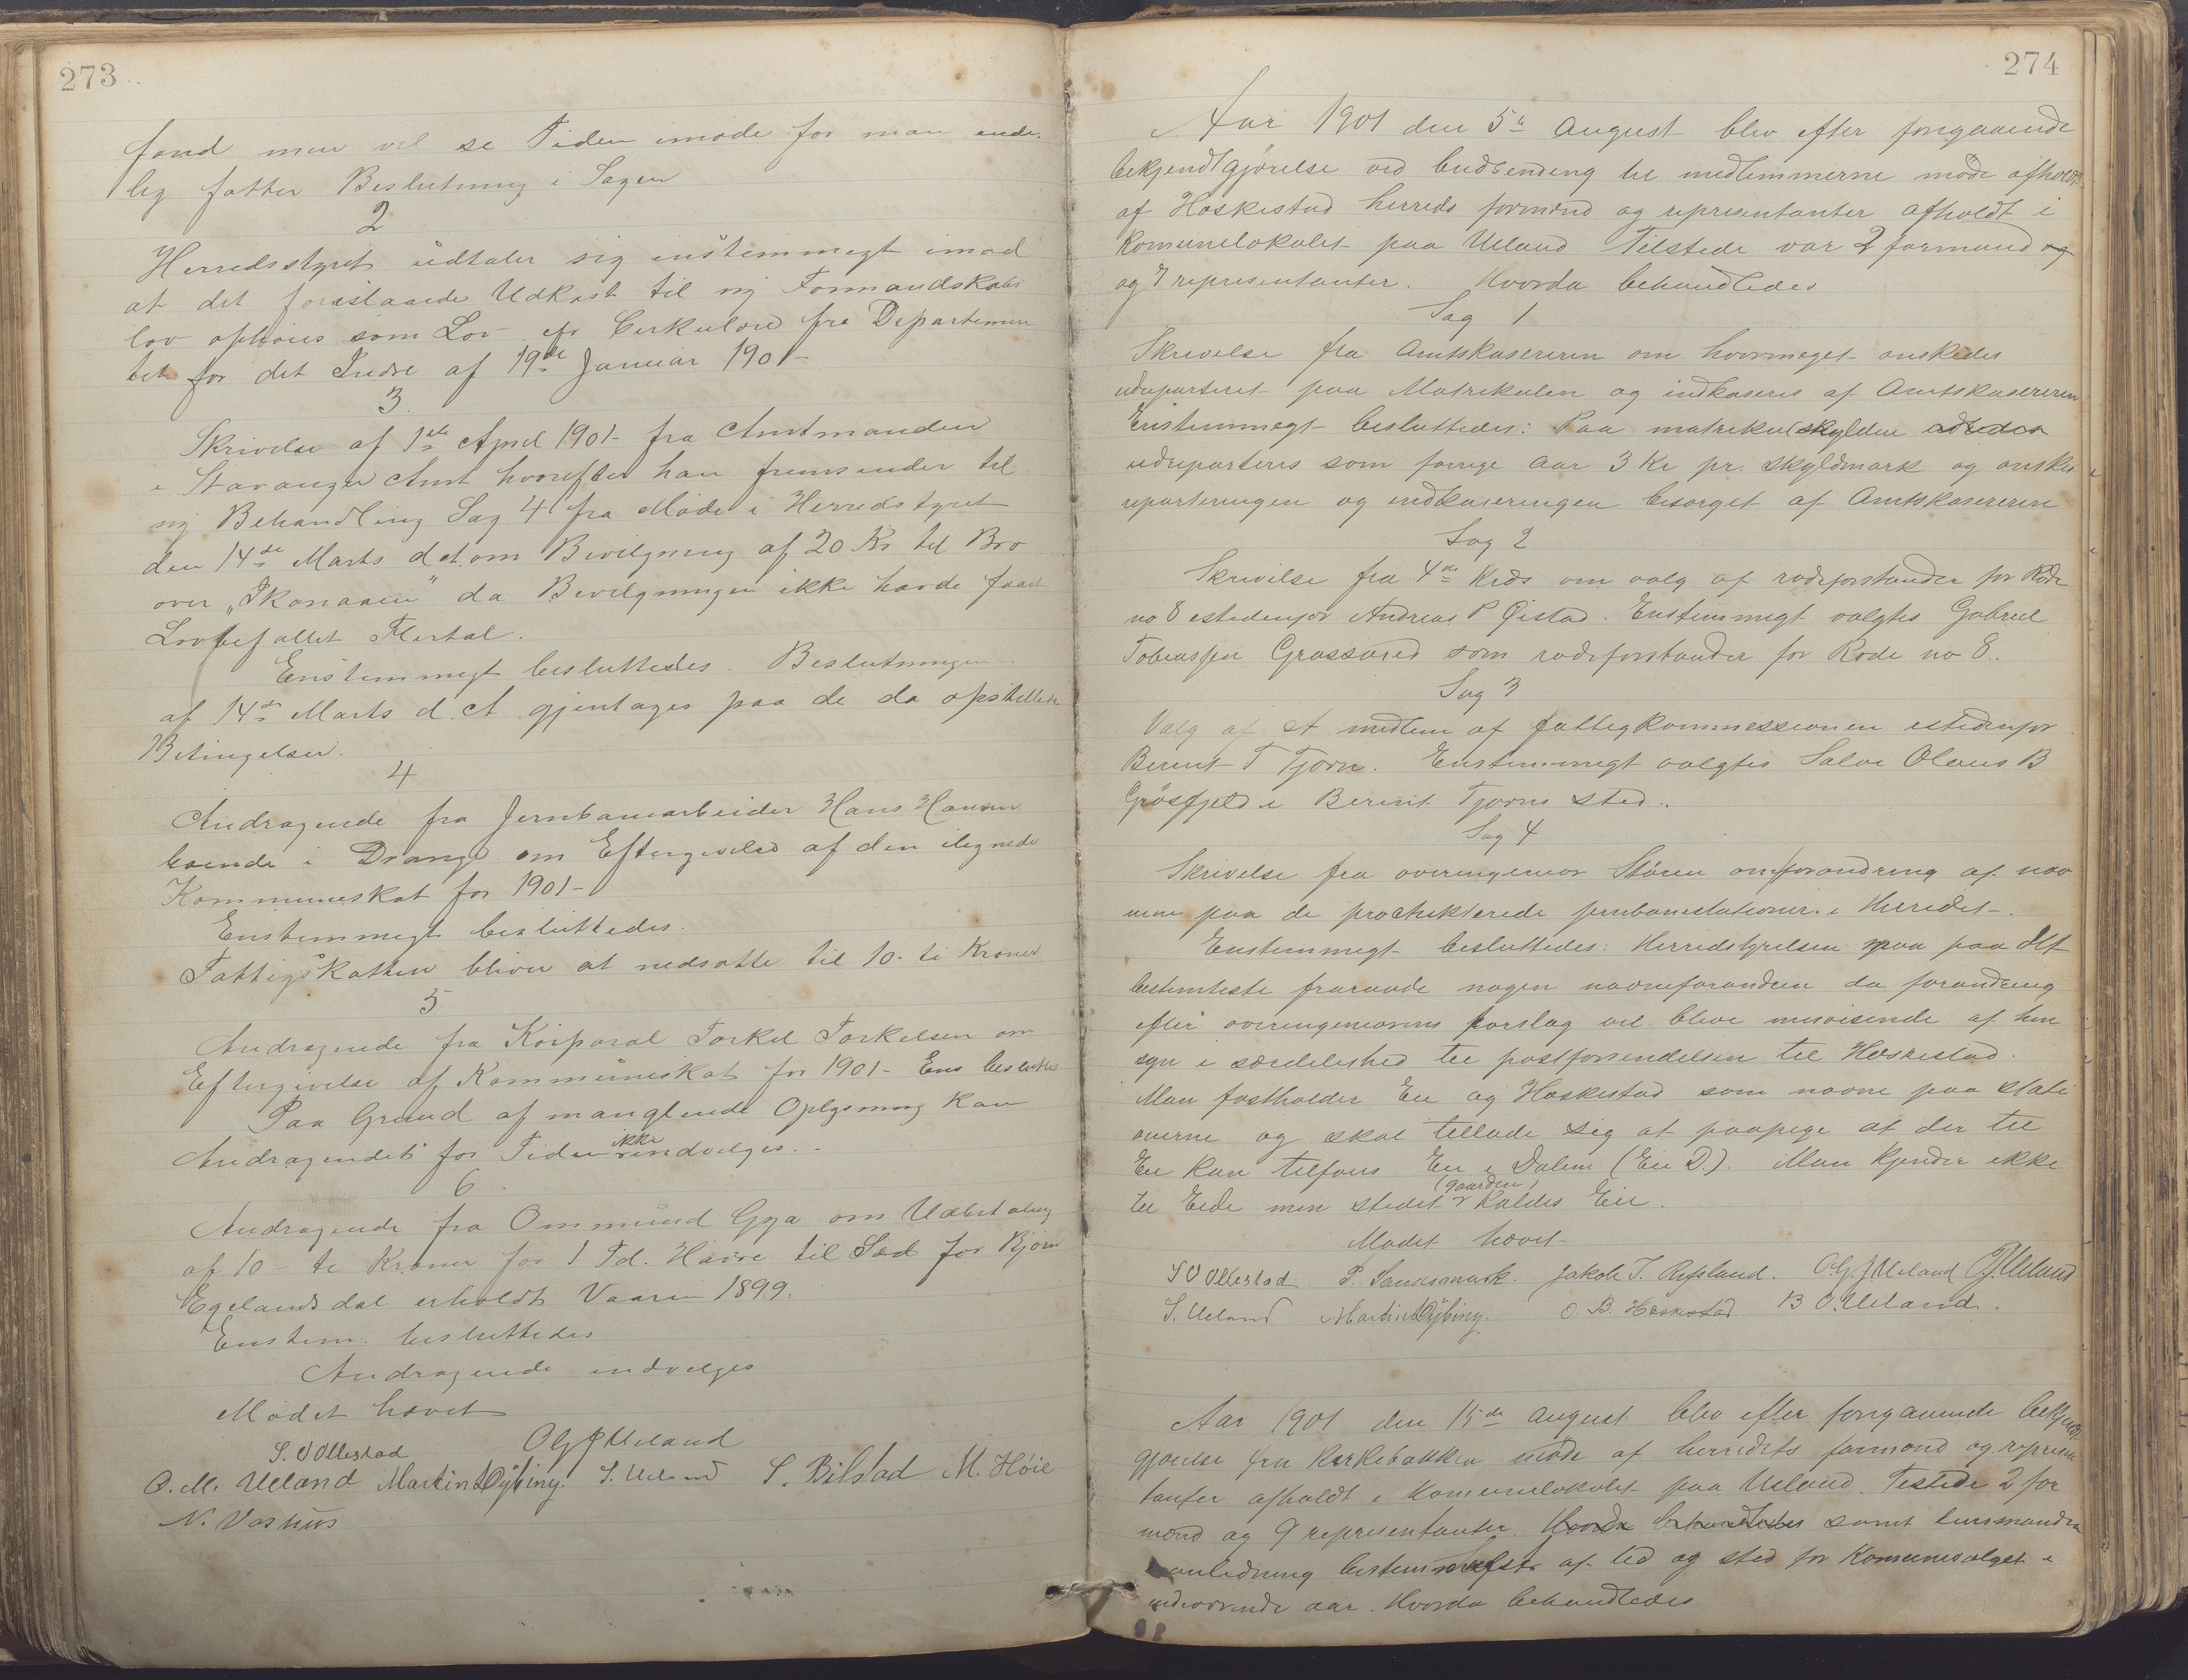 273
fond men vil se Tiden imøde før man ende-
lig fatter Beslutning i Sagen
2
Herredsstyret udtaler sig enstemmigt imod
at det foreslaaede Udkast til ny Formandskabs
lov ophøies som Lov cfr Cirkulære fra Departemen
tet for det Indre af 19de Januar 1901-
3.
Skrivelse af 1ste April 1901- fra Amtmanden
i Stavanger Amt hvorefter han fremsender til
ny Behandling Sag 4 fra Møde i Herredstyret
den 14de Marts d A om Bevilgning af 20 Kr til Bro
over „Skonaaen" da Bevilgningen ikke havde faaet
Lovbefallet Flertal.
Enstemmigt besluttedes. Beslutningen
af 14de Marts d. A gjentages paa de da opstillede
Betingelser.
4
Andragende fra Jernbanearbeider Hans Hansen
boende i Drange om Eftergivelse af den ilignede
Kommuneskat for 1901-
Enstemmigt besluttedes.
Fattigskatten bliver at nedsætte til 10- ti Kroner
5
Andragende fra Korporal Torkel Torkelsen om
Eftergivelse af Kommuneskat for 1901- Ens besluttes
Paa Grund af manglende Oplysning kan
Andragendet for Tiden ikke indvilges.-
6.
Andragende fra Ommund Gya om Udbetaling
af 10 - ti Kroner for 1 Td. Havre til Sæd for Bjørn
Egelandsdal erholdt Vaaren 1899.
Enstem. besluttedes
Andragende indvilges
Mødet hævet
S. O Ollestad Ol G J Ueland
O. M. Ueland Martin L Dybing. S. Ueland S. Bilstad M. Høie
N. Vashus
274
Aar 1901 den 5te August blev efter forrgaaende
bekjendtgjørelse ved budsending til medlemmerne møde afholdt
af Heskestad herreds formænd og representanter afholdt i
Komunelokalet paa Ueland Tilstede var 2 formænd og
og 7 representanter. Hvorda behandledes
Sag 1
Skrivelse fra Amtskasereren om hvormeget ønskedes
udreparteret paa Matrikulen og indkaseres af Amtskasereren
Enstemmegt besluttedes: Paa matrikulskylden
udreparteres som forrige aar 3 Kr pr. skyldmark og ønskes
reparteringen og indkaseringen besørget af Amtskasereren
Sag 2
Skrivelse fra 4de Kreds om valg af rodeforstander for Rode
no 8 istedenfor Andreas P Øistad. Enstemmigt valgtes Gabriel
Tobiassen Grøssæred som rodeforstander for Rode no 8.
Sag 3
Valg af et medlem af fattigkommessionen istedenfor
Berent T Tjørn. Enstemmegt valgtes Salve Olaus B
Grøsfjeld i Berent Tjørns sted.
Sag 4
Skrivelse fra overingeniør Støren om forandring af nav
nene paa de prochekterede jernbanestationer i Herredet-.
Enstemmegt besluttedes: Herredstyrelsen maa paa det
bestemteste fraraade nogen navneforandren da forandring
efter overingeniørens forslag vil blive misvisende af hen
syn i særdeleshed til postforsendelsen til Heskestad.
Man fastholder Eie og Heskestad som navne paa stati
onerne og skal tillade sig at paapege at der til
Eie kan tilføies Eie i Dalene (Eie D.). Man kjender ikke
til Eide men stedet (gaarden) kaldes Eie.
Mødet hævet-
S O Ollestad. P. Sandsmark. Jakob T. Refsland. Ol. G. J Ueland O J. Ueland
S. Ueland Martin L Dybing. O. B. Heskestad. B O. Ueland.
Aar 1901 den 15de August blev efter forrgaaende bekjendt
gjørelse fra Kirkebakken møde af herredets formænd og represen
tanter afholdt i Komunelokalet paa Ueland. Testede 2 for
mænd og 9 representanter. Hvorda behandledes samt lensmanden
i anledning bestemmelse af tid og sted for Komunevalget i
indeværende aar. Hvorda behandledes